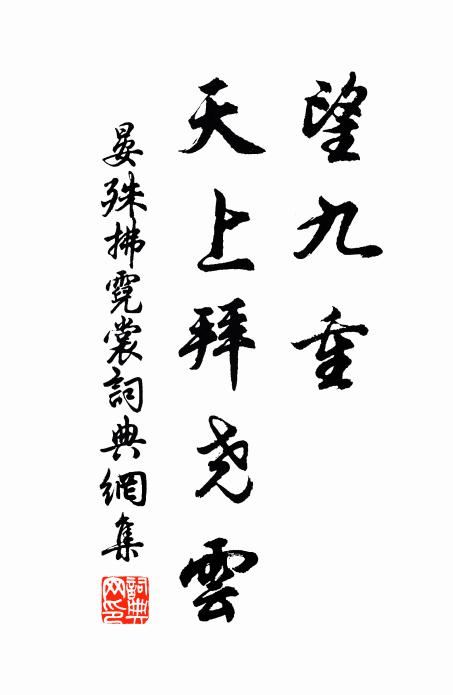 望九重
天上拜尧雲
晏殊拂霓裳詞典網集
詞典
网印